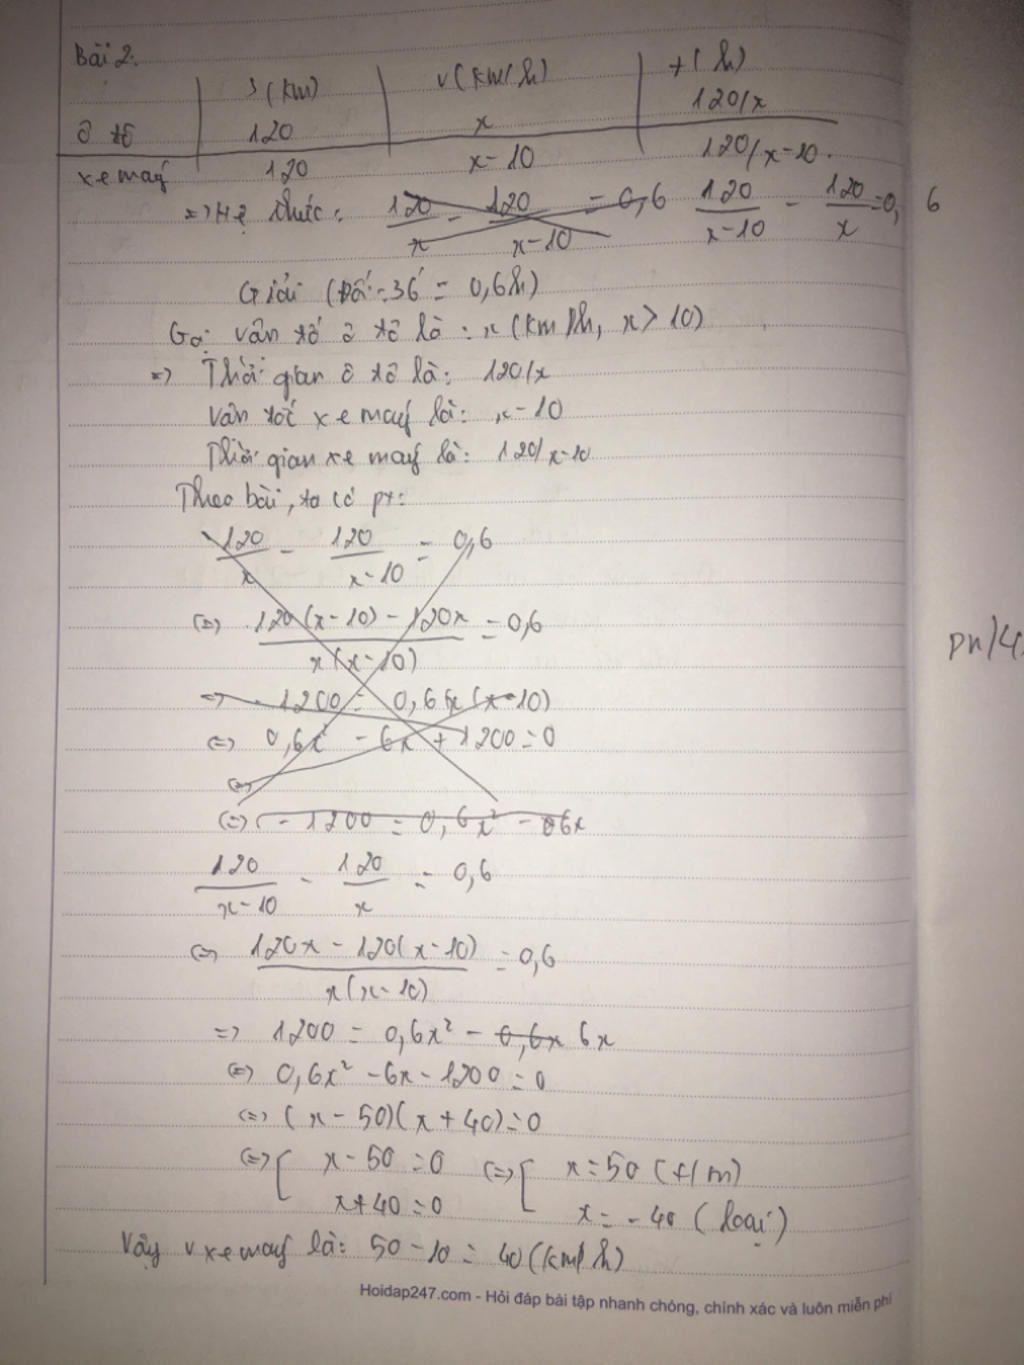 Bài 2:
S(km) v(km/h) t(h)
ô tô 120 x 120/x
xe máy 120 x-10 120/x-10.
=> Hệ thức: 120/x - 120/x-10 = 0,6 120/x-10 - 120/x = 0,6
Giải (Đổi: 36' = 0,6h)
Gọi vân tố ô tô là: x (km/h, x > 10)
=> Thời gian ô tô là: 120/x
Vân tốc xe máy là: x-10
Thời gian xe máy là: 120/x-10
Theo bài, ta có pt:
120/x - 120/x-10 = 0,6
(=) 120(x-10) - 120x/x(x-10) = 0,6
=> -1200 = 0,6x(x-10)
(=) 0,6x² - 6x + 1200 = 0
(=)
(=) -1200 = 0,6x² - 6x
120/x-10 - 120/x = 0,6
(=) 120x - 120(x-10)/x(x-10) = 0,6
=> 1200 = 0,6x² - 0,6x 6x
(=) 0,6x² - 6x - 1200 = 0
(=) (x-50)(x+40) = 0
(=) [ x-50 = 0 (=) [ x = 50 (t/m)
x+40 = 0 x = -40 (loại)
Vậy v xe máy là: 50-10 = 40 (km/h)
Hoidap247.com - Hỏi đáp bài tập nhanh chóng, chính xác và luôn miễn phí